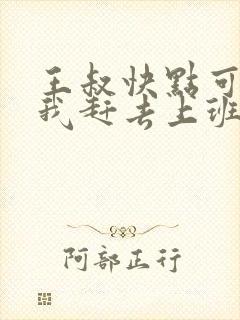 王叔快點可
我赶去上班
阿部正行